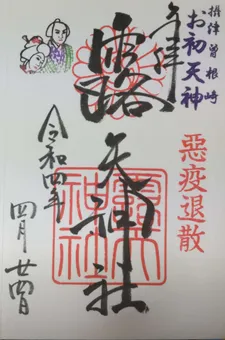 摂津曽根崎
お初天神
奉拝
露天神社
惡疫退散
令和四年
四月廿四日
露天神社